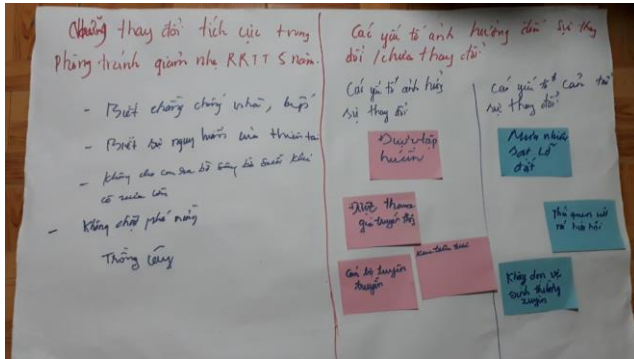 Những thay đổi tích cực trong
phòng tránh giảm nhẹ RRTT 5 năm.
- Biết chằng chống nhà, bếp
- Biết sự nguy hiểm của thiên tai
- Không cho con ra bờ sông bờ suối khi
có mưa lớn
- Không chặt phá rừng
Trồng cây
Các yếu tố ảnh hưởng đến sự thay
đổi / chưa thay đổi
Các yếu tố ảnh hưởng
sự thay đổi
Được tập
huấn
Được tham
gia truyền thông
Cán bộ tuyên
truyền
Các yếu tố cản trở
sự thay đổi
Mưa nhiều
sạt lở
đất
Thói quen vứt
rác
Không dọn vệ
sinh thường
xuyên